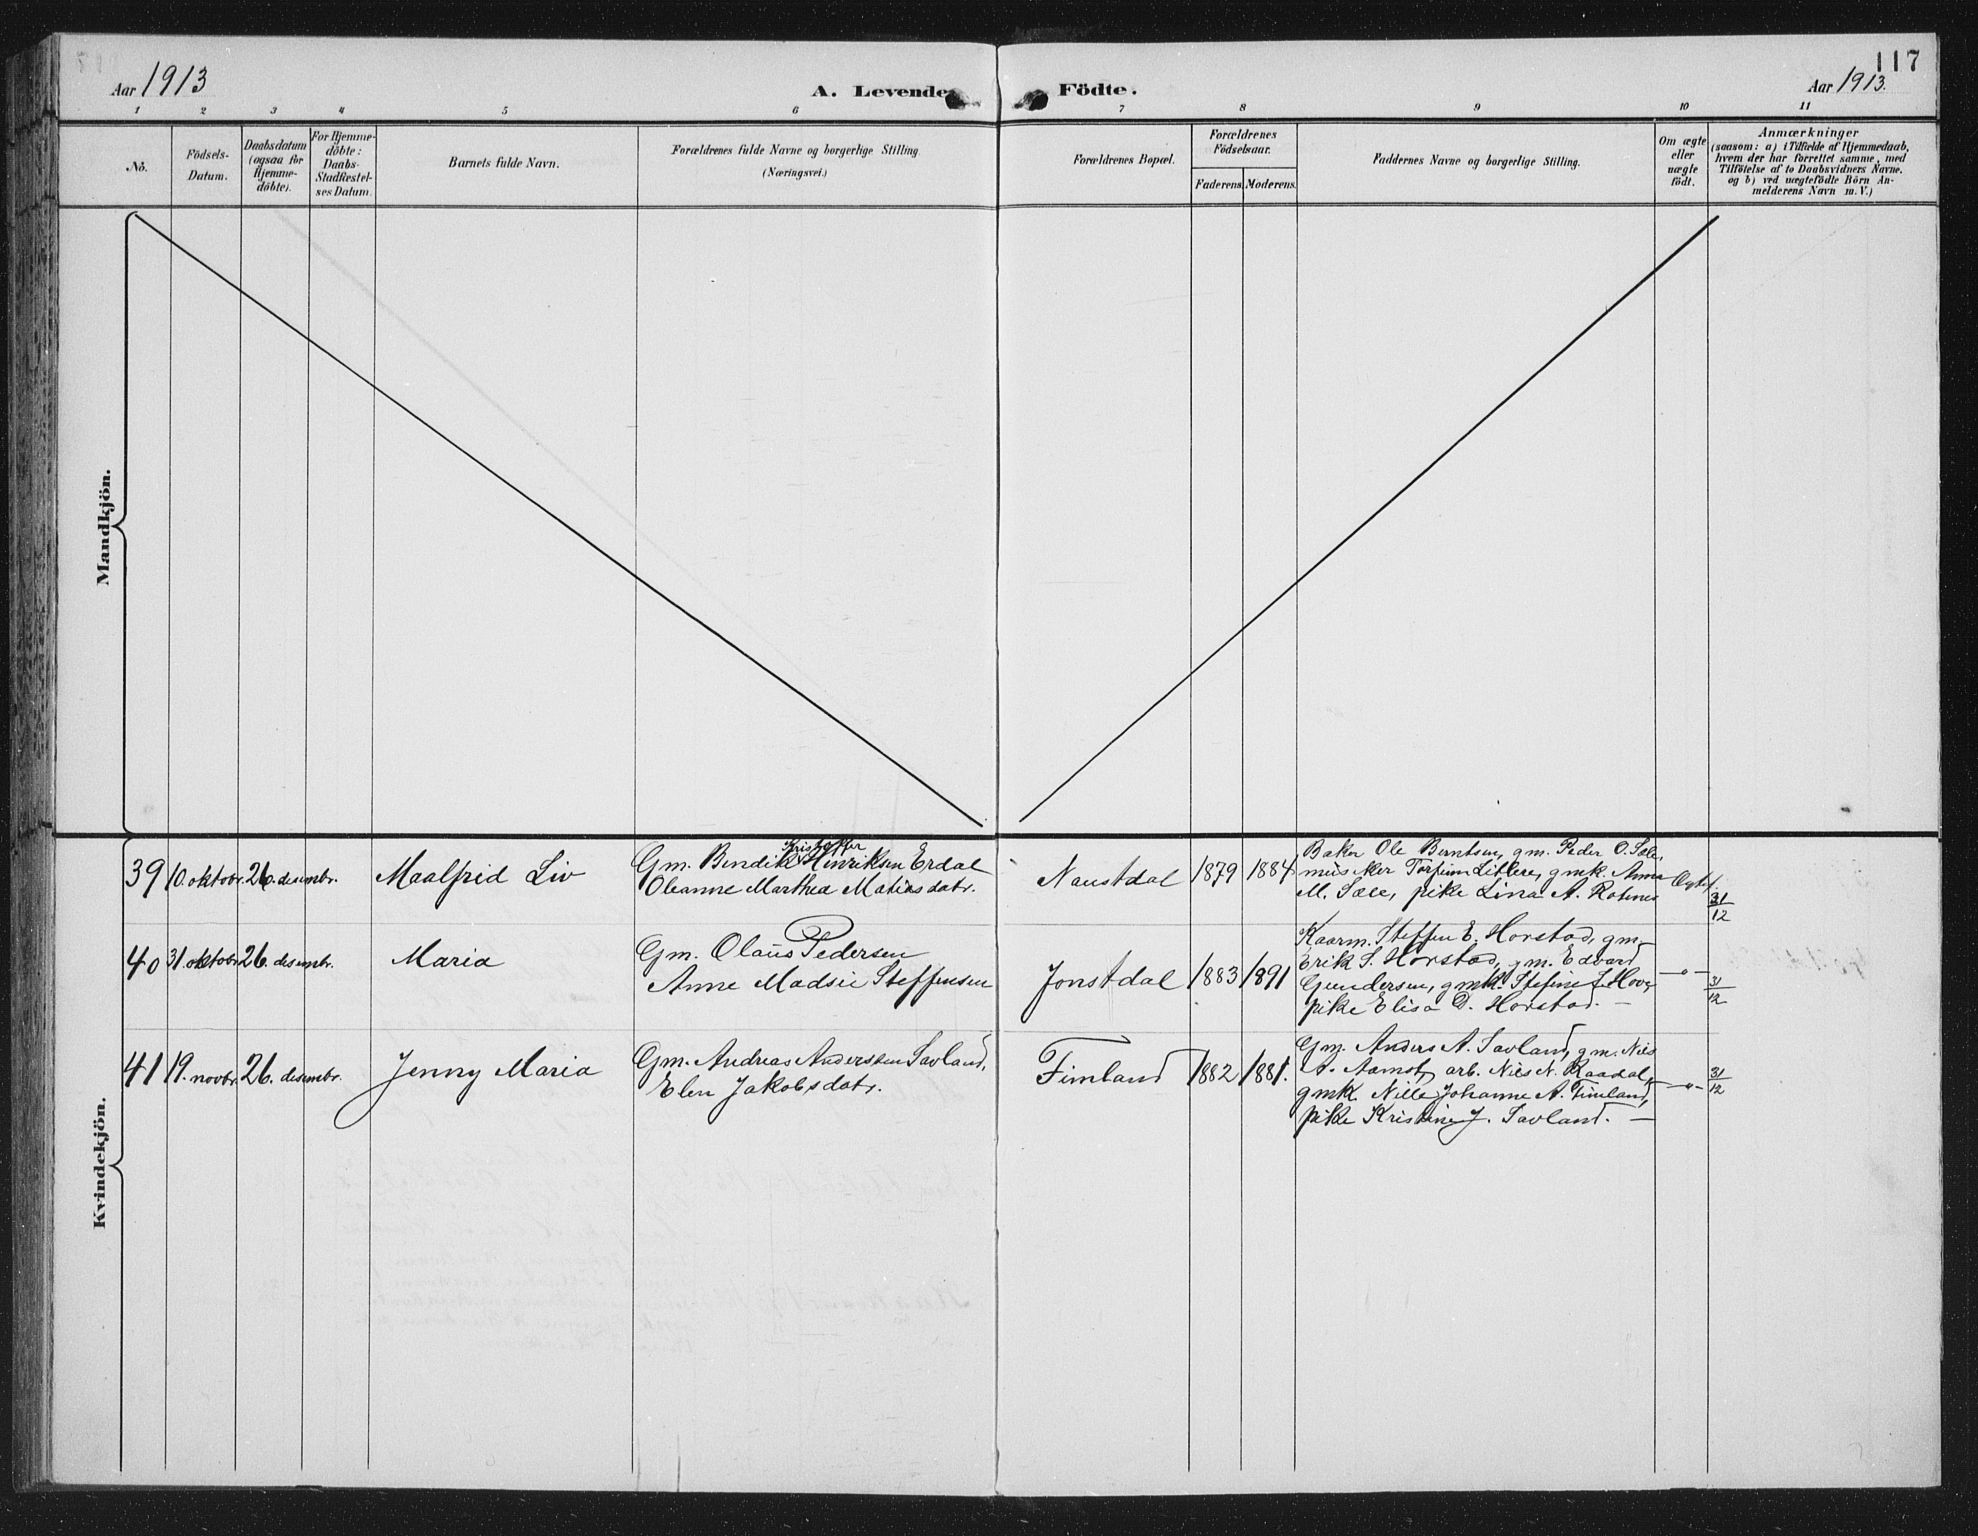 117
Aar 1913
A. Levende Födte.
Aar 1913.
1 2 3 4 5 6 7 8 9 10 11
No.
Födsels-
Datum.
Daabsdatum
(ogsaa for
Hjemme-
döbte).
For Hjemme-
döbte:
Daabs-
Stadfestel-
ses Datum.
Barnets fulde Navn.
Forældrenes fulde Navne og borgerlige Stilling
(Næringsvei.)
Forældrenes Bopæl.
Forældrenes
Födselsaar.
Faderens. Moderens.
Faddernes Navne og borgerlige Stilling.
Om ægte
eller
uægte
födt.
Anmærkninger
(saasom: a) i Tilfælde af Hjemmedaab,
hvem der har forrettet samme, med
Tilföielse af to Daabsvidners Navne.
og b) ved uægtefödte Börn An-
melderens Navn m. V.)
Mandkjön.
Kvindekjön.
39 10. oktobr. 26. desembr. Maalfrid Liv
Kristoffer
Gm. Bendik Henriksen Erdal
Oleanne Marthea Matiasdatr.
Naustdal 1879 1884
Baker Ole Berntsen, gm. Peder O. Sæle,
gmk. Anna
M. Sæle, pike Lina A.
Ægte
31/12
40 31. oktobr. 26. desembr. Maria
Gm. Olaus Pedersen
Anne Madsie Steffensen
Jonstdal 1883 1891
Kaarm. Steffen E. Horstad, gm.
Erik S. Horstad, gm. Edvard
Gundersen, gmk. Stefine J. Hove,
pike Elisa D. Horstad. —
—„—
31/12
41 19. novbr. 26. desembr. Jenny Maria
Gm. Andreas Andersen Savland,
Elen Jakobsdatr.
Fimland 1882 1881.
Gm. Anders A. Savland, gm. Nils
A. Aamot, arb. Nils N. Raadal,
gmk. Nille Johanne A. Fimland,
pike Kristine J. Savland. —
—„—
31/12